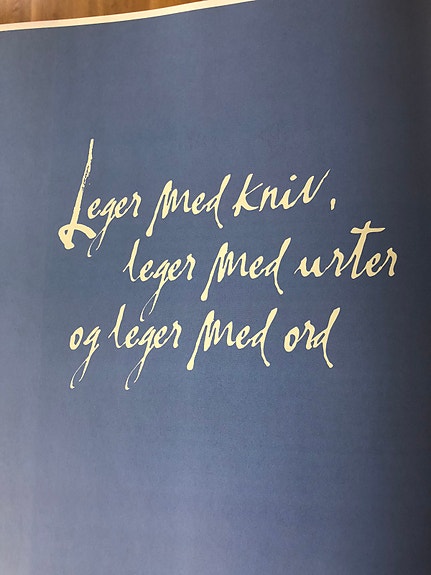 Leger med kniv,
leger med urter
og leger med ord